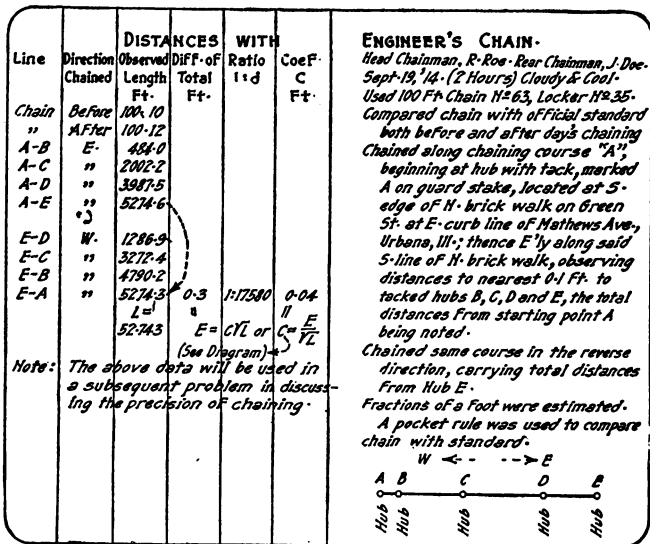 DISTANCES WITH
Line Direction Observed Diff. of Ratio Coef.
Chained Length Total 1:d C
Ft. Ft. Ft.
Chain Before 100.10
" After 100.12
A-B E. 484.0
A-C " 2002.2
A-D " 3987.5
A-E " 5274.6
E-D W. 1286.9
E-C " 3272.4
E-B " 4790.2
E-A " 5274.3 0.3 1:17580 0.04
L= " "
52.743 E = C√L or C = E/√L
(See Diagram)
Note: The above data will be used in
a subsequent problem in discuss-
ing the precision of chaining.
ENGINEER'S CHAIN.
Head Chainman, R. Roe. Rear Chainman, J. Doe.
Sept. 19, '14. (2 Hours) Cloudy & Cool.
Used 100 Ft. Chain Nº 63, Locker Nº 35.
Compared chain with official standard
both before and after day's chaining
Chained along chaining course "A",
beginning at hub with tack, marked
A on guard stake, located at S.
edge of N. brick walk on Green
St. at E. curb line of Mathews Ave.,
Urbana, Ill.; thence E'ly along said
S. line of N. brick walk, observing
distances to nearest 0.1 Ft. to
tacked hubs B, C, D and E, the total
distances from starting point A
being noted.
Chained same course in the reverse
direction, carrying total distances
From Hub E.
Fractions of a foot were estimated.
A pocket rule was used to compare
chain with standard.
W E
A B C D E
Hub Hub Hub Hub Hub